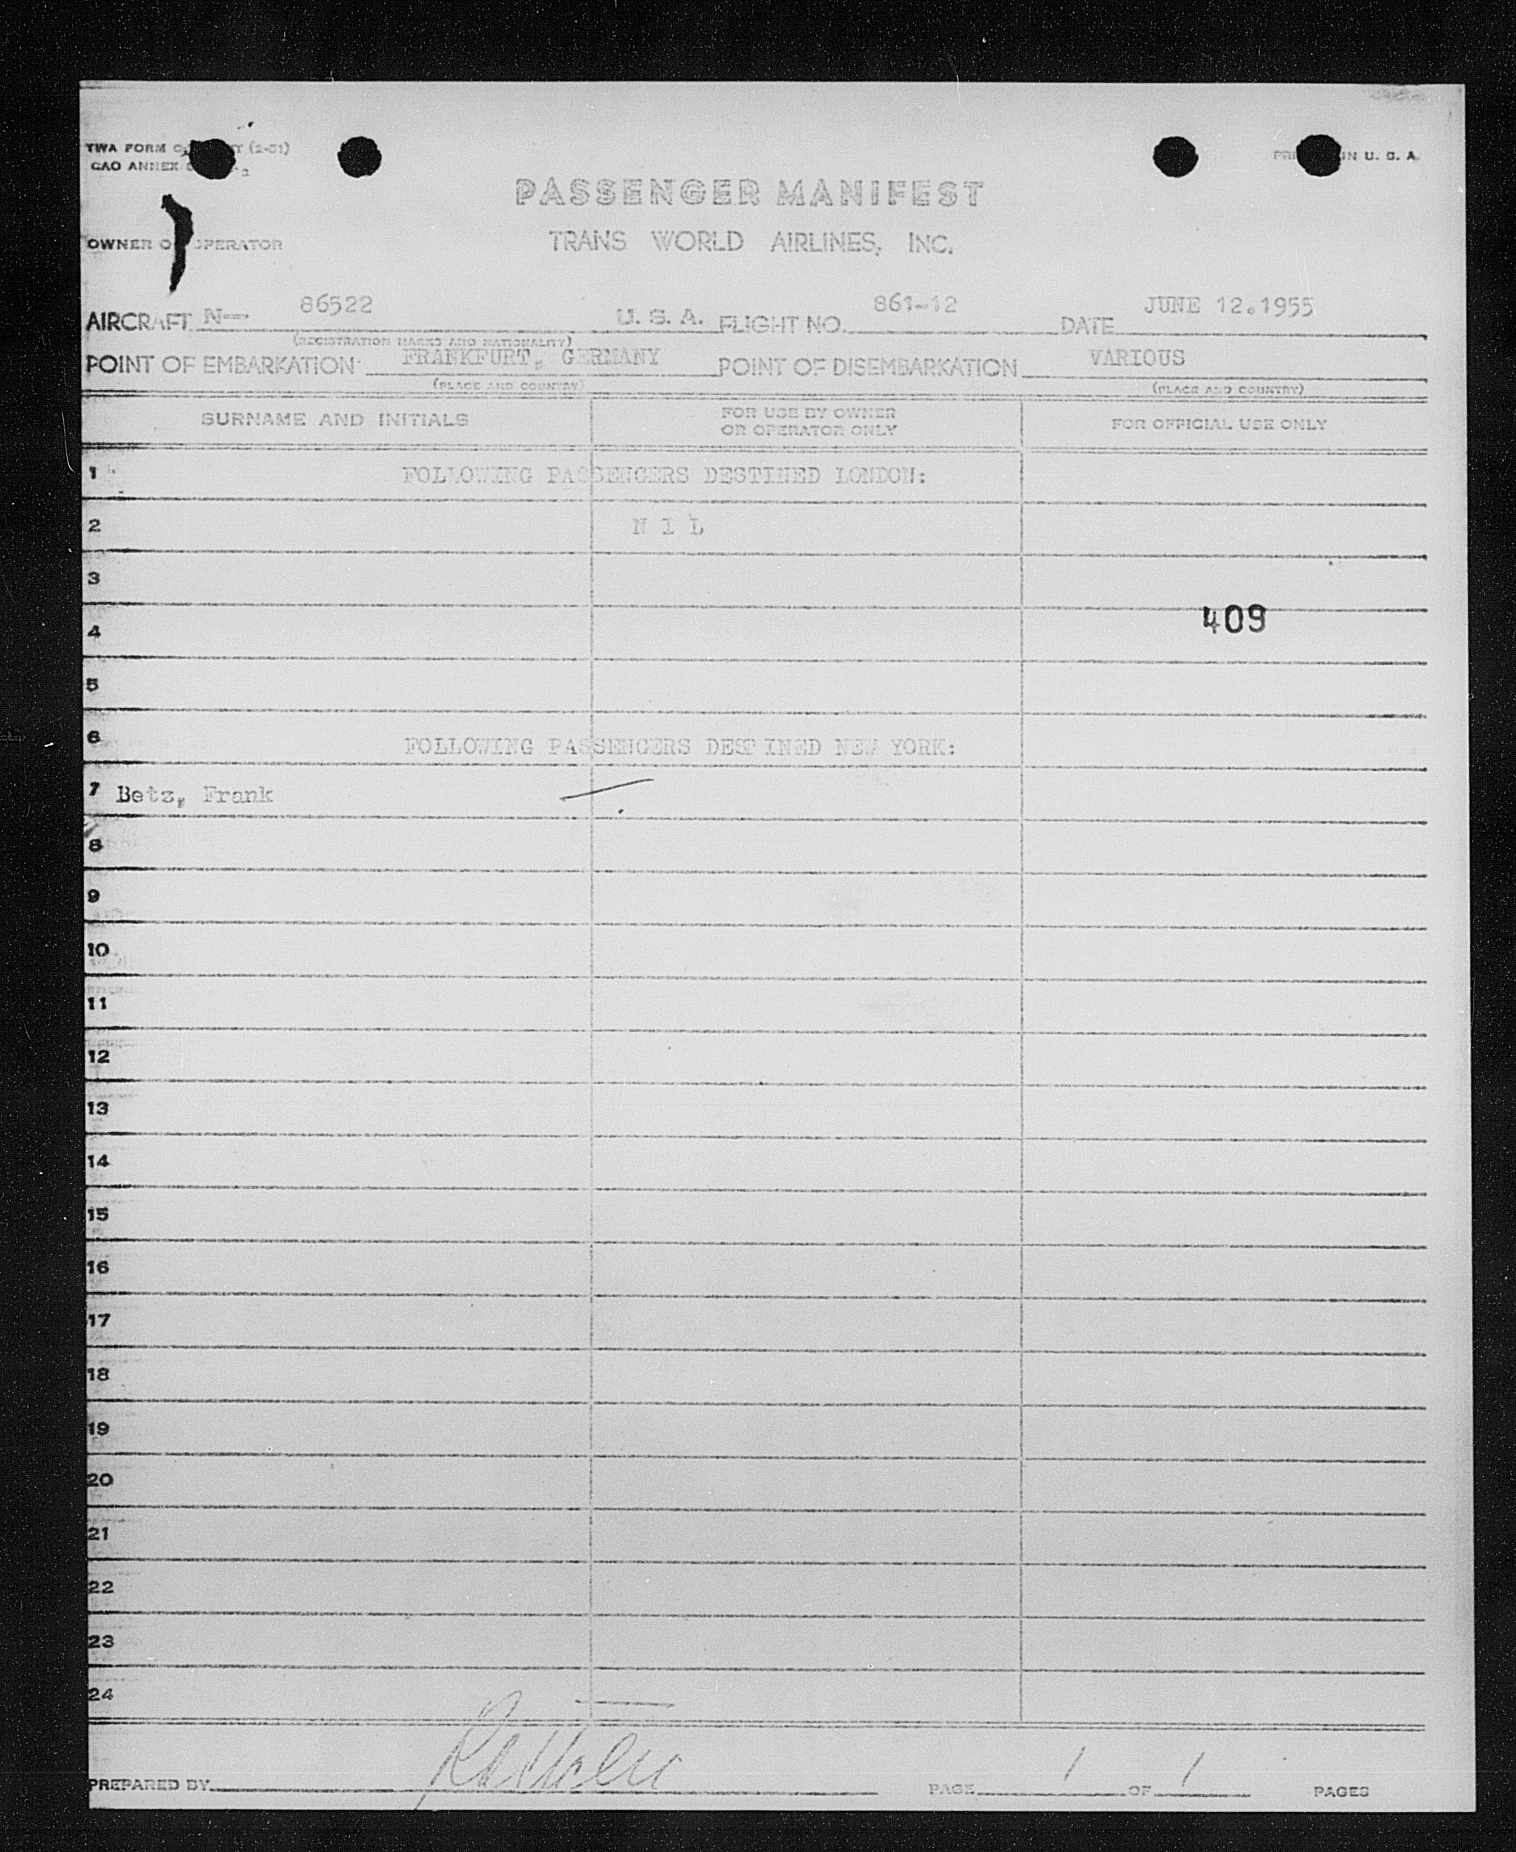 TWA FORM (2-51)
CAO ANNEX
PRINTED IN U. S. A.
PASSENGER MANIFEST
OWNER OR OPERATOR TRANS WORLD AIRLINES, INC.
AIRCRAFT N— 86522 U. S. A. FLIGHT NO. 861-12 DATE JUNE 12.1955
(REGISTRATION MARKS AND NATIONALITY)
POINT OF EMBARKATION FRANKFURT, GERMANY POINT OF DISEMBARKATION VARIOUS
(PLACE AND COUNTRY) (PLACE AND COUNTRY)
SURNAME AND INITIALS FOR USE BY OWNER OR OPERATOR ONLY FOR OFFICIAL USE ONLY
1 FOLLOWING PASSENGERS DESTINED LONDON:
2 N I L
3
409
4
5
6 FOLLOWING PASSENGERS DESTINED NEW YORK:
7 Betz, Frank
8
9
10
11
12
13
14
15
16
17
18
19
20
21
22
23
24
PREPARED BY PAGE 1 OF 1 PAGES